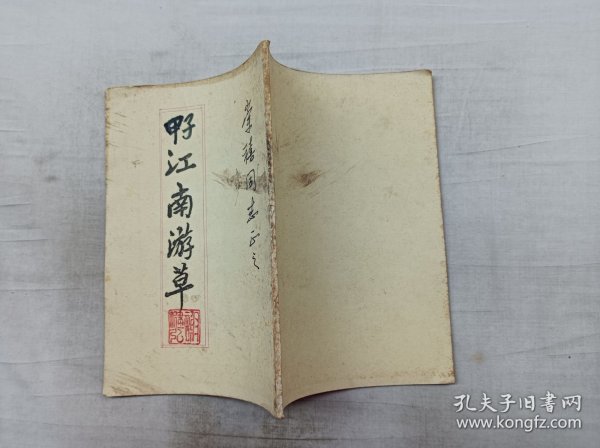 甲子江南游草
同志正之
孔夫子旧书网
www.kongfz.com